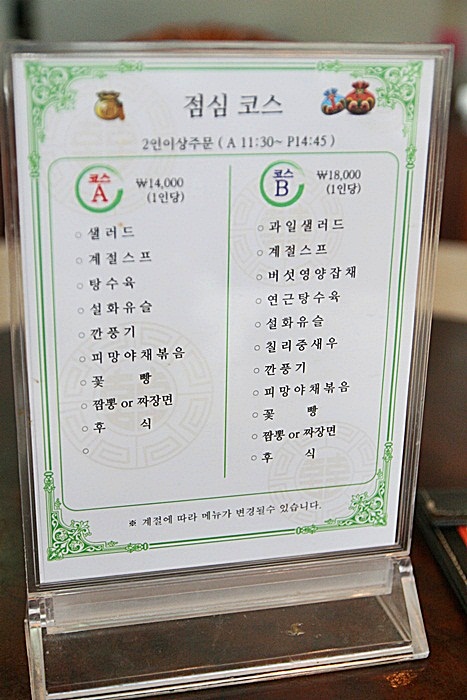 점심 코스
2인이상주문 ( A 11:30~ P14:45 )
코스 A
₩14,000
(1인당)
○ 샐러드
○ 계절스프
○ 탕수육
○ 설화유슬
○ 깐풍기
○ 피망야채볶음
○ 꽃 빵
○ 짬뽕 or 짜장면
○ 후 식
○
코스 B
₩18,000
(1인당)
○ 과일샐러드
○ 계절스프
○ 버섯영양잡채
○ 연근탕수육
○ 설화유슬
○ 칠리중새우
○ 깐풍기
○ 피망야채볶음
○ 꽃 빵
○ 짬뽕 or 짜장면
○ 후 식
※ 계절에 따라 메뉴가 변경될수 있습니다.